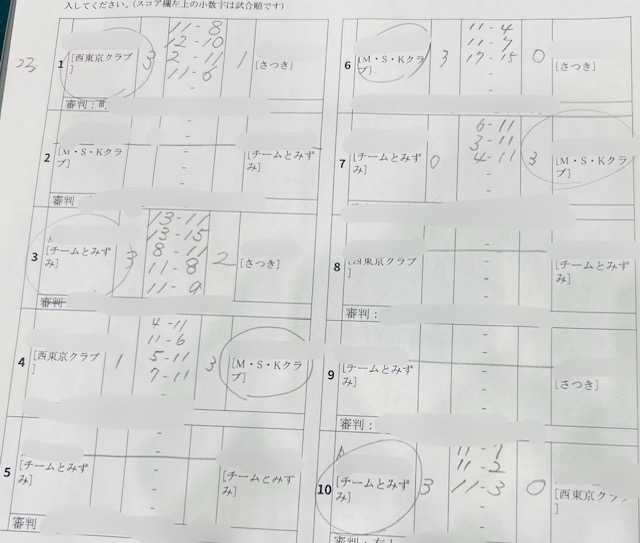 入してください。(スコア欄左上の小数字は試合順です)
1
[西東京クラブ
]
3
11-8
12-10
2-11
11-6
-
1
[さつき]
審判:
2
[M・S・Kクラ
ブ]
-
-
-
-
-
[チームとみず
み]
審判
3
[チームとみず
み]
3
13-11
13-15
8-11
11-8
11-9
2
[さつき]
審判
4
[西東京クラブ
]
1
4-11
11-6
5-11
7-11
-
3
[M・S・Kクラ
ブ]
5
[チームとみず
み]
-
-
-
-
[チームとみず
み]
審判
6
[M・S・Kクラ
ブ]
3
11-4
11-7
17-15
-
-
0
[さつき]
7
[チームとみず
み]
0
6-11
3-11
4-11
-
-
3
[M・S・Kクラ
ブ]
8
[西東京クラブ
]
-
-
-
-
-
[チームとみず
み]
審判:
9
[チームとみず
み]
-
-
-
-
-
[さつき]
審判:
10
[チームとみず
み]
3
11-1
11-2
11-3
-
-
0
[西東京クラブ
]
審判: